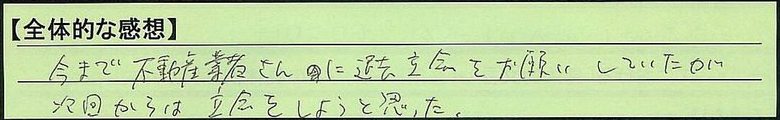 【全体的な感想】
今まで不動産業者さんに退去立会をお願いしていたが
次回からは立会をしようと思った。